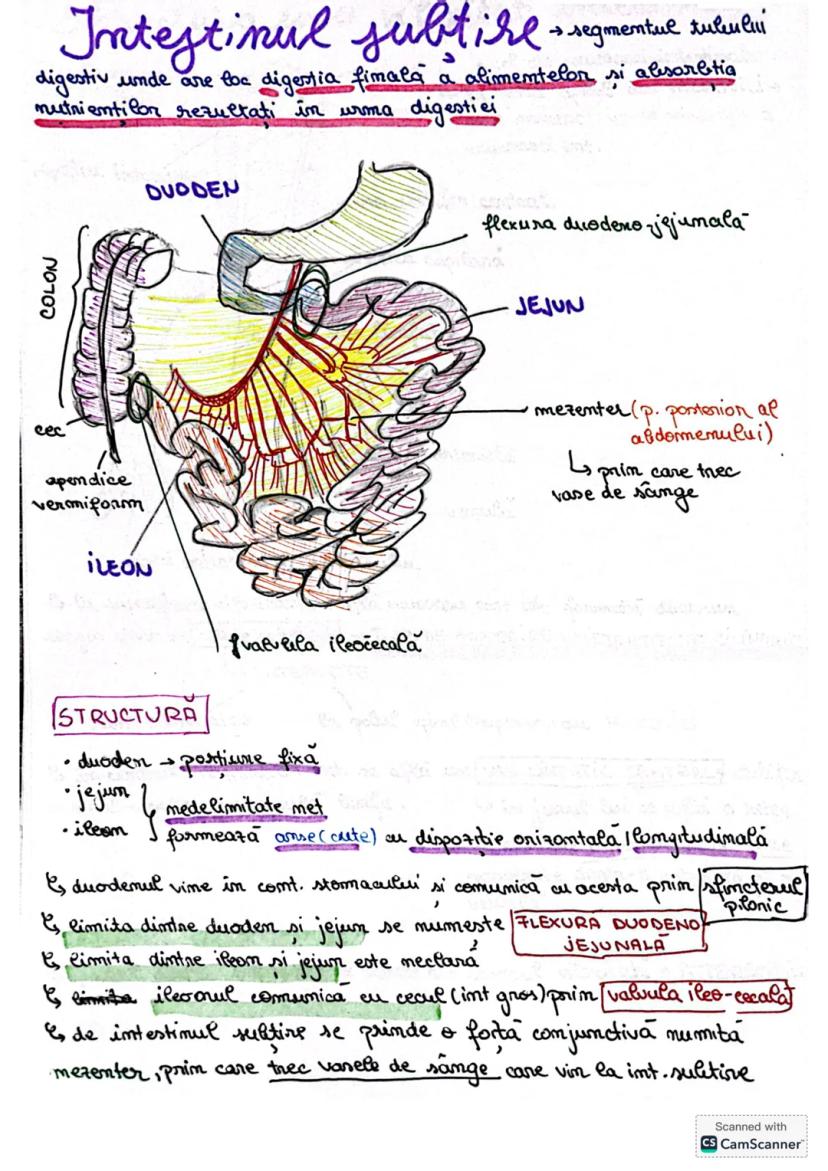 Intestinul subțire → segmentul tubului
digestiv unde are loc digestia finală a alimentelor și absorbția
nutrienților rezultați în urma digestiei
DUODEN
flexura duodeno-jejunală
COLON
JEJUN
mezenter (p. posterior al
abdomenului)
↳ prin care trec
vase de sânge
cec
apendice
vermiform
ILEON
valvula ileocecală
STRUCTURĂ
• duoden → porțiune fixă
• jejun
• ileon
nedelimitate net
formează anse (cute) cu dispoziție orizontală / longitudinală
↳ duodenul vine în cont. stomacului și comunică cu acesta prin sfincterul
piloric
↳ limita dintre duoden și jejun se numește FLEXURA DUODENO
JEJUNALĂ
↳ limita dintre ileon și jejun este neclară
↳ limita ileonul comunică cu cecul (int gros) prin valvula ileo-cecală
↳ de intestinul subțire se prinde o foită conjunctivă numită
mezenter, prin care trec vasele de sânge care vin la int. subțire
Scanned with
CS CamScanner